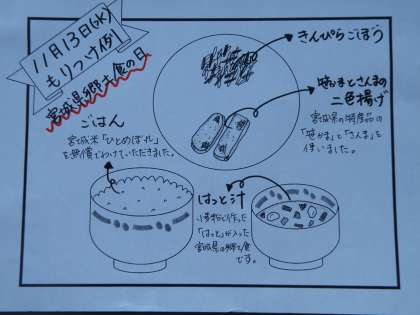 11月13日(水)
もりつけ例
宮城県郷土食の日
きんぴらごぼう
笹かまとさんまの
二色揚げ
宮城県の特産品の
「笹かま」と「さんま」を
使いました。
ごはん
宮城米「ひとめぼれ」
を無償でわけていただきました。
はっと汁
小麦粉で作った
「はっと」が入った
宮城県の郷土食
です。